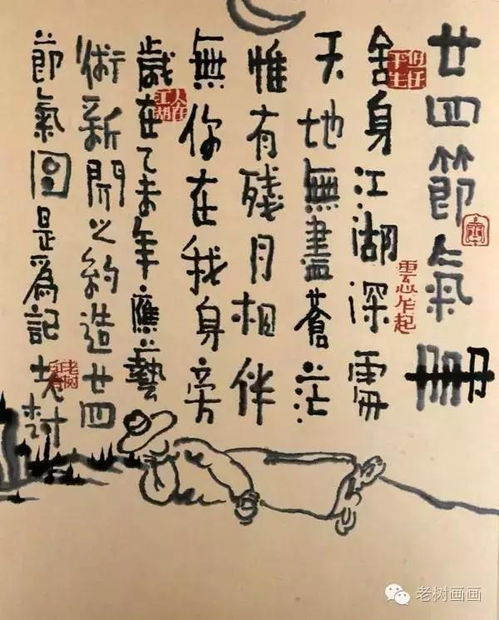 廿四節氣冊
舍身江湖深
天地無盡蒼茫
惟有殘月相伴
無你在我身旁
歲在乙未年應藝
術新聞之約造廿四
節氣圖是爲記 老樹
人在江湖
老樹画画